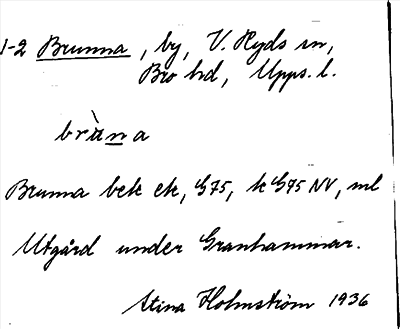 1-2 Brunna, by, V. Ryds sn,
Bro hd, Upps. l.
brùna
Brunna bek ek, G75, k G75 NV, ml
Utgård under Granhammar.
Stina Holmström 1936